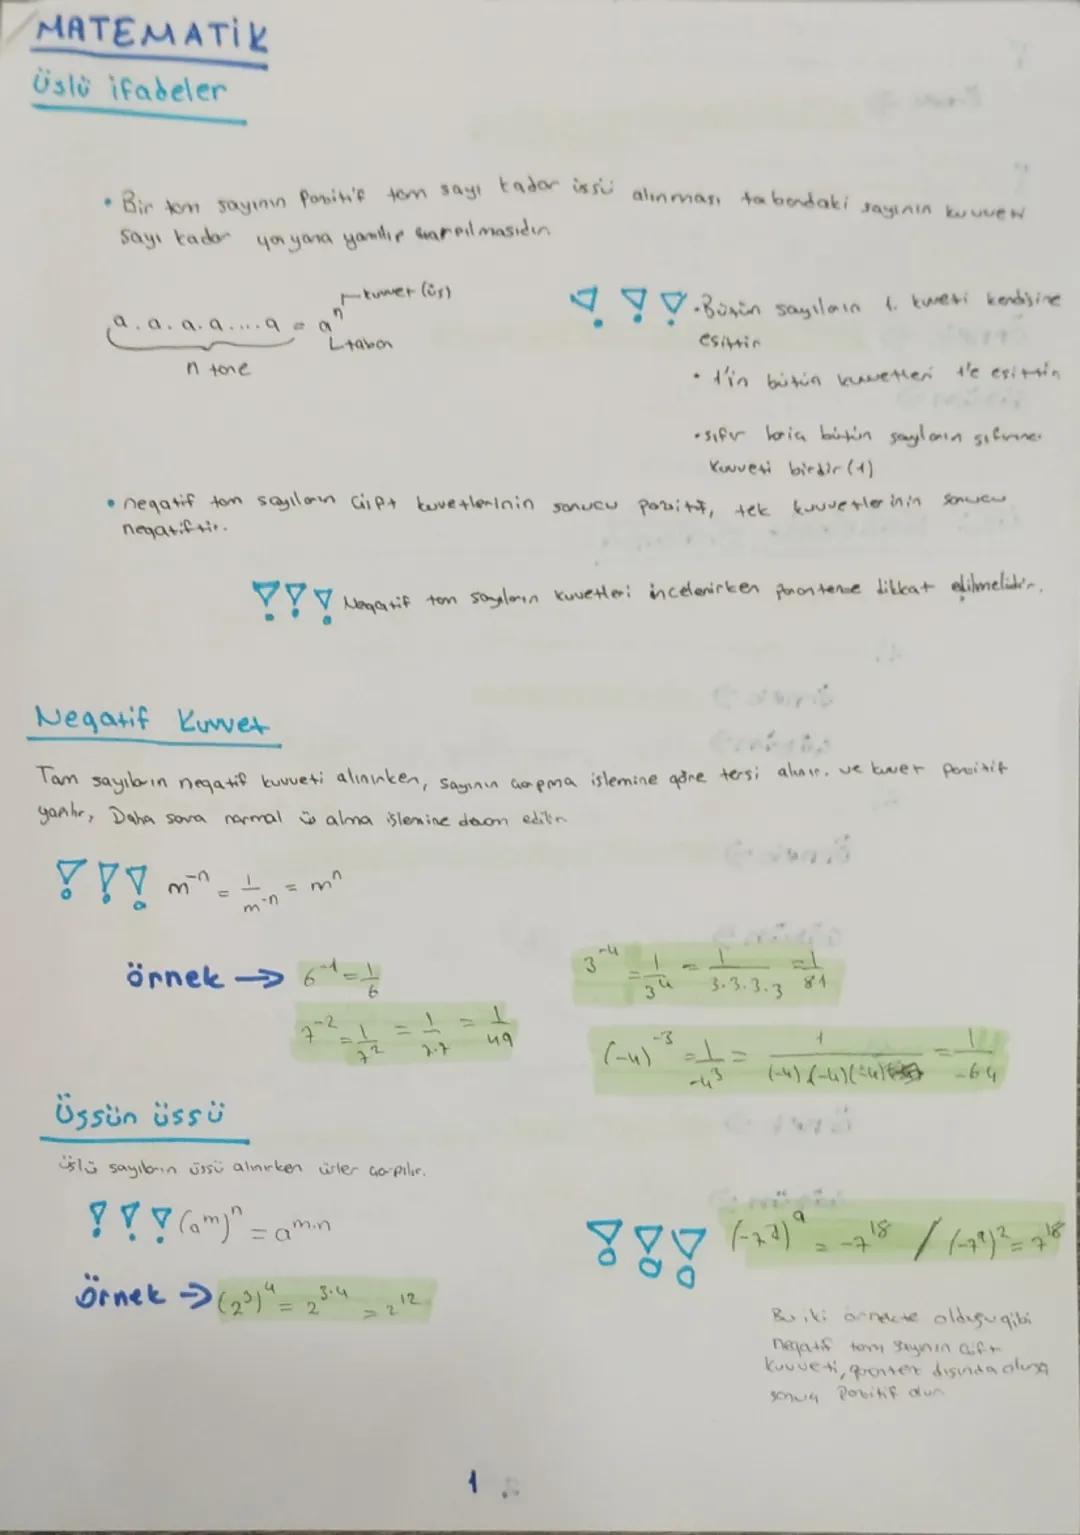 MATEMATİK
üslü ifadeler
• Bir tam sayının Pozitif tam sayı kadar üssü alınması tabandaki sayının kuvveti
sayı kadar yan yana yazılıp çarpılmasıdır
kuvvet (üs)
a.a.a.a....a = aⁿ
taban
n tane
•Bütün sayıların 1. kuvveti kendisine
eşittir
• 1'in bütün kuvvetleri 1'e eşittir
•sıfır hariç bütün sayıların sıfırıncı
Kuvveti birdir (1)
• negatif tam sayıların Çift kuvetlerinin sonucu pozitif, tek kuvvetlerinin sonucu
negatiftir.
!!! Negatif tam sayıların kuvvetleri incelenirken paranteze dikkat edilmelidir.
Negatif Kuvvet
Tam sayıların negatif kuvveti alınırken, sayının çarpma işlemine göre tersi alınır. ve kuvet pozitif
yapılır, Daha sonra normal üs alma işlemine devam edilir
!!! m⁻ⁿ = 1/m⁻ⁿ = mⁿ
örnek → 6⁻¹ = 1/6
7⁻² = 1/7² = 1/7.7 = 1/49
3⁻⁴ = 1/3⁴ = 1/3.3.3.3 = 1/81
(-4)⁻³ = 1/-4³ = 1/(-4)(-4)(-4) = 1/-64
Üssün üssü
üslü sayıların üssü alınırken üsler çarpılır.
!!! (aᵐ)ⁿ = aᵐ·ⁿ
örnek → (2³)⁴ = 2³·⁴ = 2¹²
!!! (-7²)⁹ = -7¹⁸ / (-7⁹)² = 7¹⁸
Bu iki örnekte olduğu gibi
negatif tam sayının çift
kuvveti, parantez dışında olursa
sonuç Pozitif olur
1